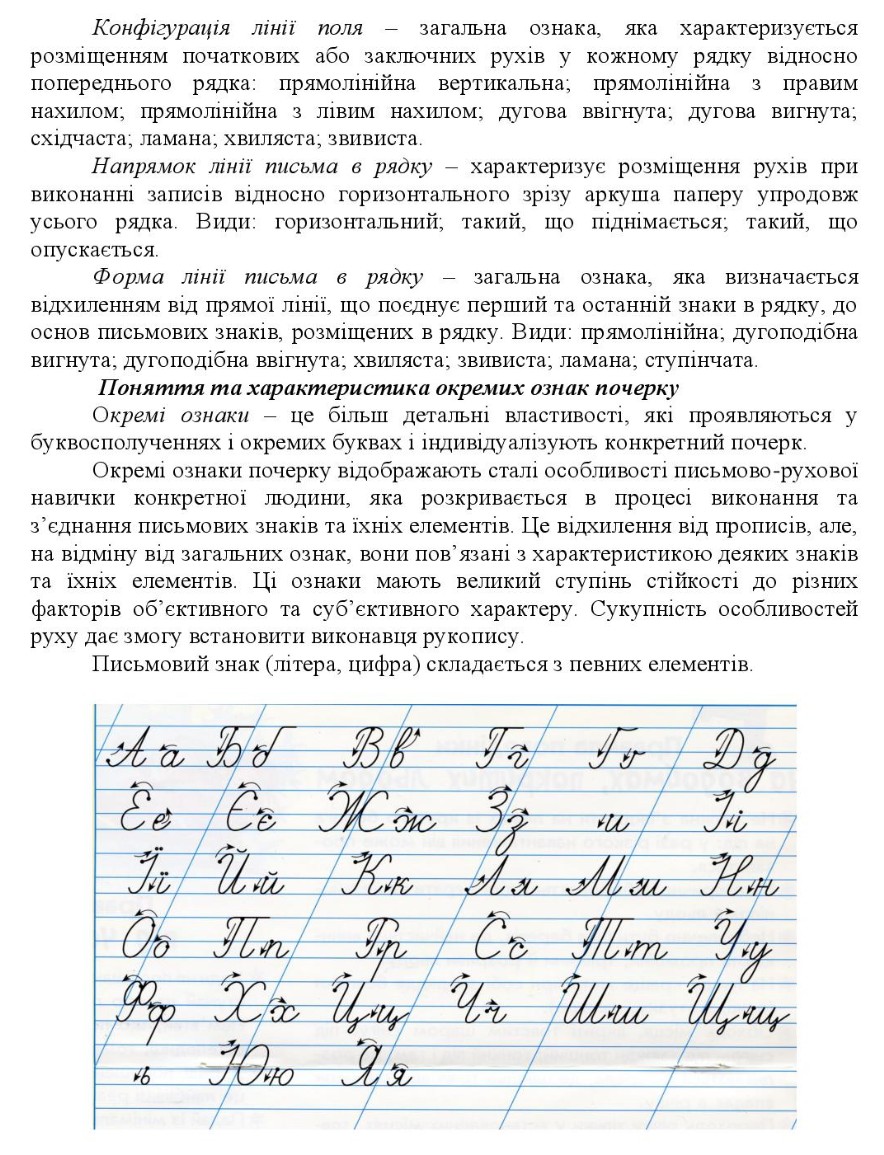 Конфігурація лінії поля – загальна ознака, яка характеризується
розміщенням початкових або заключних рухів у кожному рядку відносно
попереднього рядка: прямолінійна вертикальна; прямолінійна з правим
нахилом; прямолінійна з лівим нахилом; дугова ввігнута; дугова вигнута;
східчаста; ламана; хвиляста; звивиста.
Напрямок лінії письма в рядку – характеризує розміщення рухів при
виконанні записів відносно горизонтального зрізу аркуша паперу упродовж
усього рядка. Види: горизонтальний; такий, що піднімається; такий, що
опускається.
Форма лінії письма в рядку – загальна ознака, яка визначається
відхиленням від прямої лінії, що поєднує перший та останній знаки в рядку, до
основ письмових знаків, розміщених в рядку. Види: прямолінійна; дугоподібна
вигнута; дугоподібна ввігнута; хвиляста; звивиста; ламана; ступінчата.
Поняття та характеристика окремих ознак почерку
Окремі ознаки – це більш детальні властивості, які проявляються у
буквосполученнях і окремих буквах і індивідуалізують конкретний почерк.
Окремі ознаки почерку відображають сталі особливості письмово-рухової
навички конкретної людини, яка розкривається в процесі виконання та
з’єднання письмових знаків та їхніх елементів. Це відхилення від прописів, але,
на відміну від загальних ознак, вони пов’язані з характеристикою деяких знаків
та їхніх елементів. Ці ознаки мають великий ступінь стійкості до різних
факторів об’єктивного та суб’єктивного характеру. Сукупність особливостей
руху дає змогу встановити виконавця рукопису.
Письмовий знак (літера, цифра) складається з певних елементів.
Аа Бб Вв Гг Ґґ Дд
Ее Єє Жж Зз и Іі
Її Йй Кк Лл Мм Нн
Оо Пп Рр Сс Тт Уу
Фф Хх Цц Чч Шш Щщ
ь Юю Яя